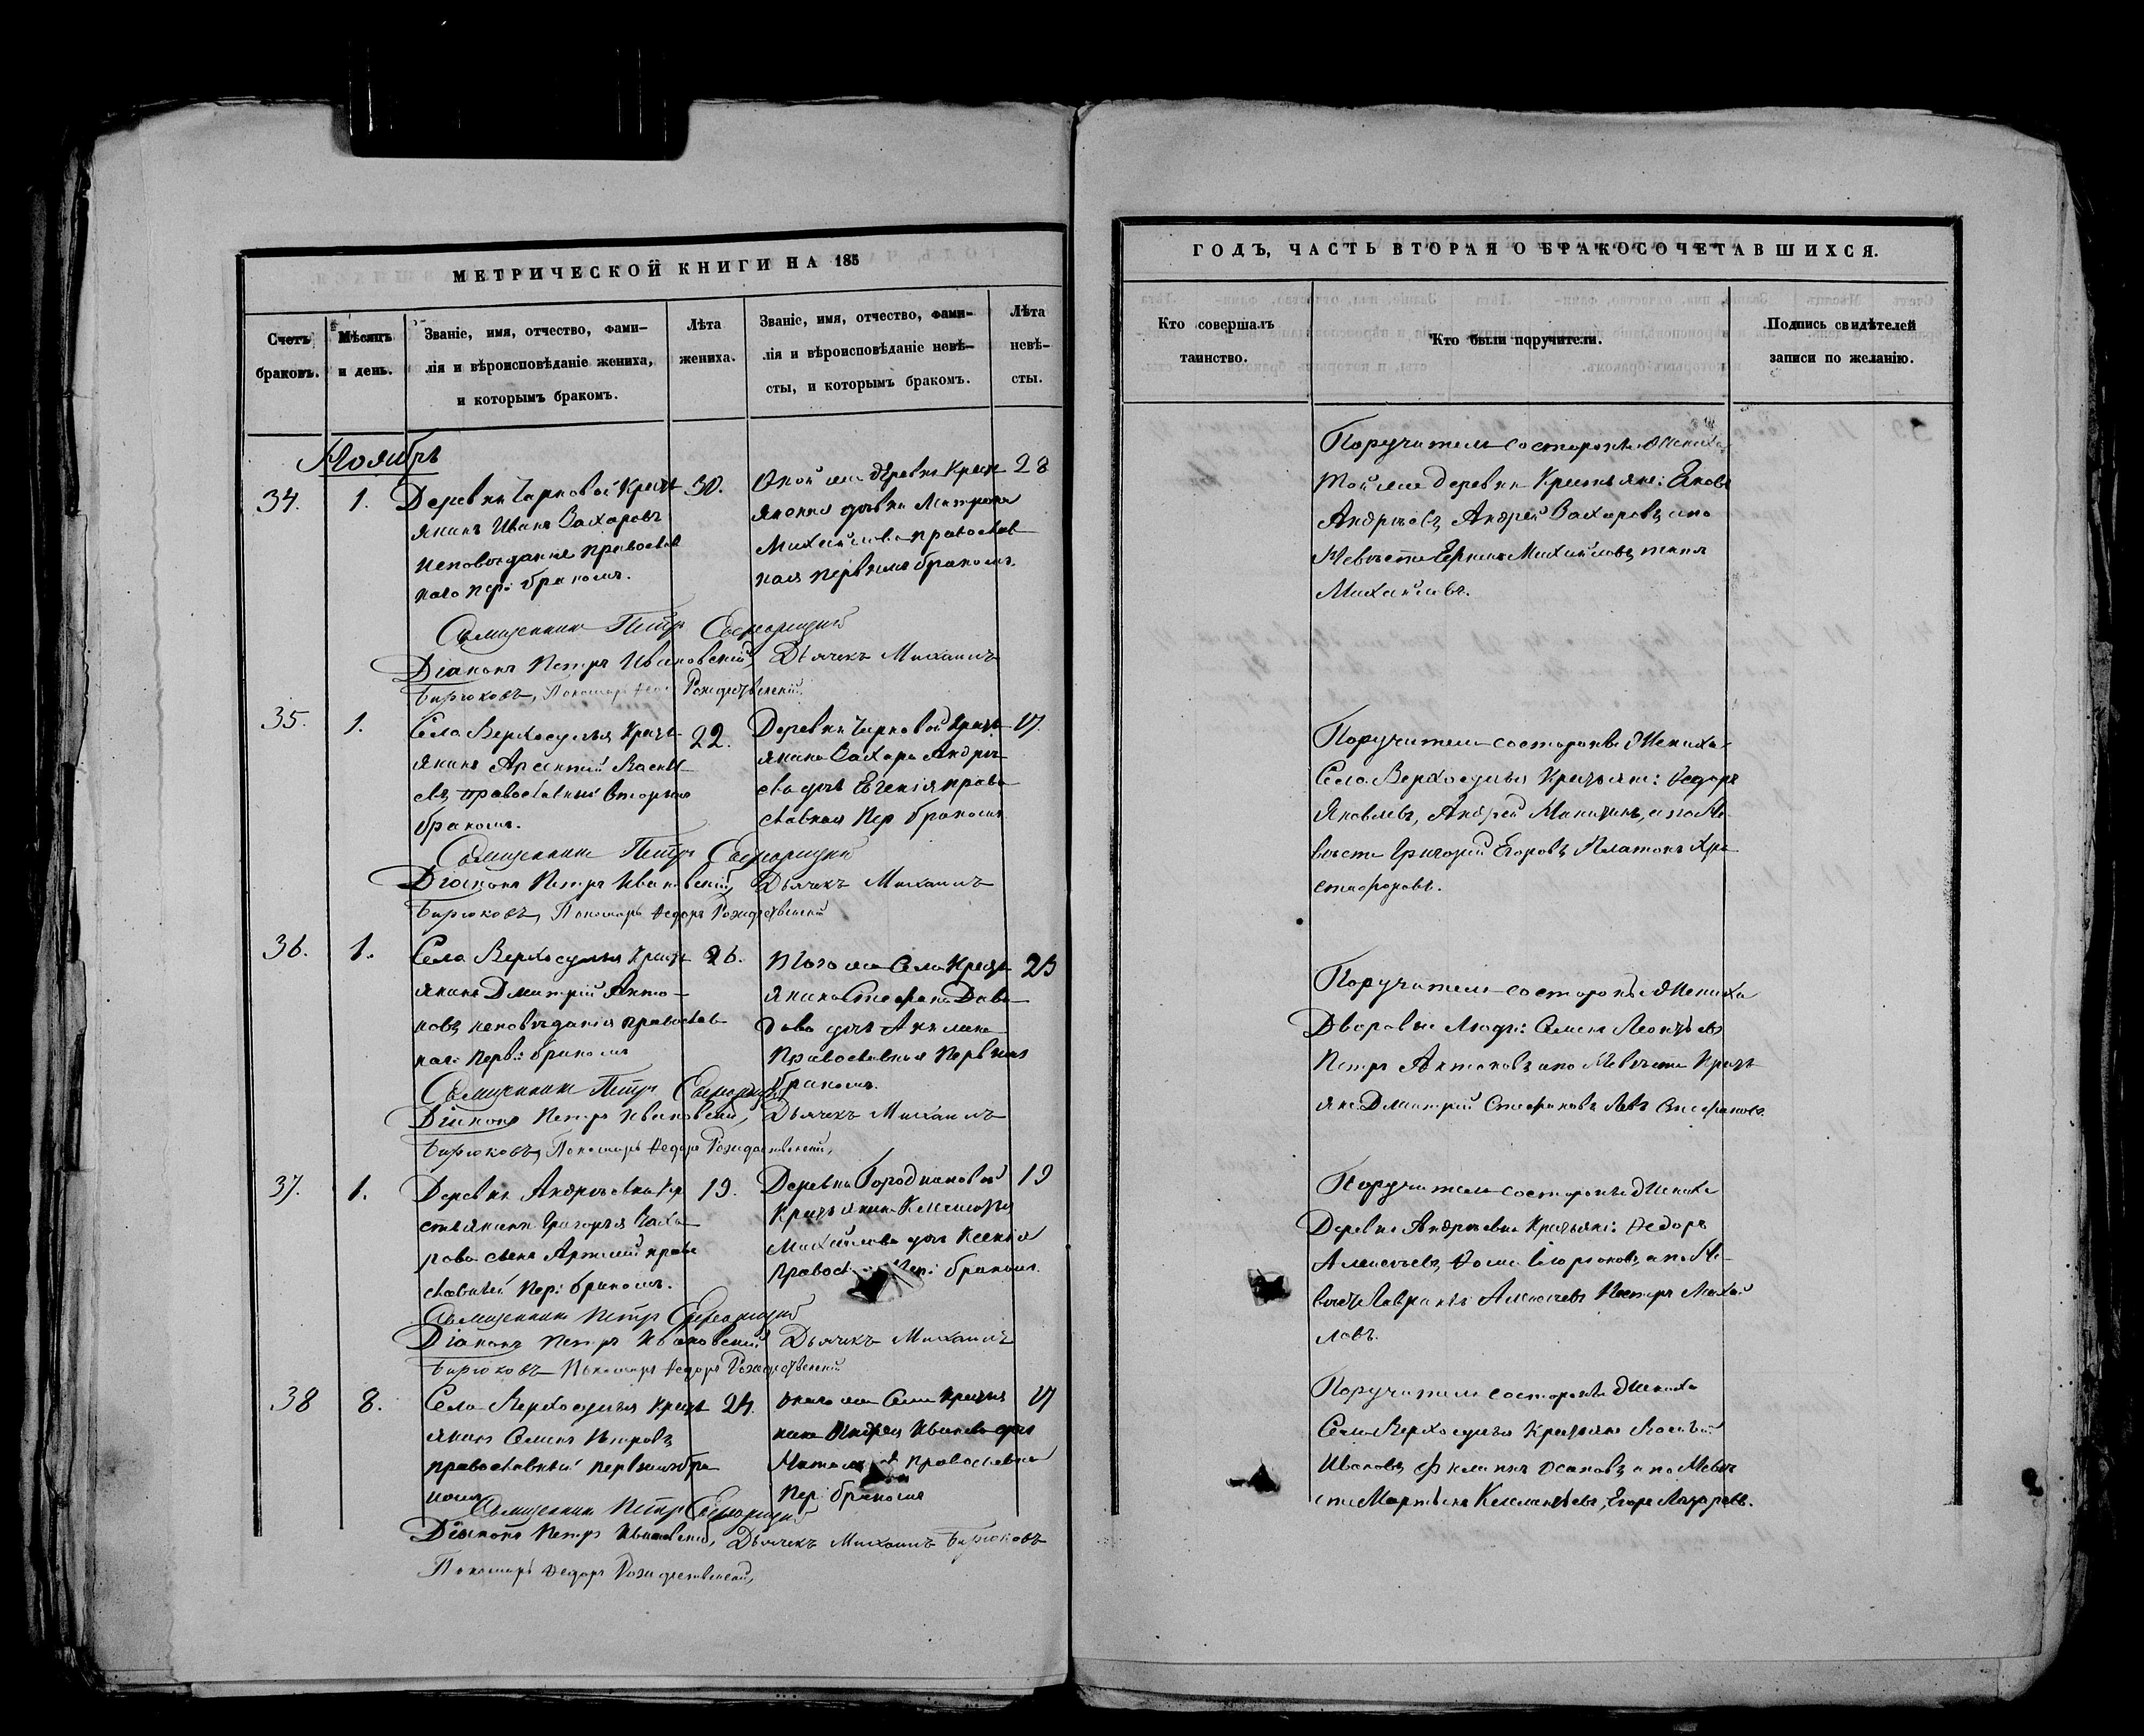 МЕТРИЧЕСКОЙ КНИГИ НА 185
Счетъ браковъ.
Мѣсяцъ и день.
Званіе, имя, отчество, фами-
лія и вѣроисповѣданіе жениха,
и которымъ бракомъ.
Лѣта жениха.
Званіе, имя, отчество, фами-
лія и вѣроисповѣданіе невѣ-
сты, и которымъ бракомъ.
Лѣта невѣ-
сты.
Ноябрь
34. 1.
Деревни Чарковой Крестъ
янинъ Иванъ Захаровъ
исповѣданія православ
наго пер: бракомъ.
30.
Оной же деревни Крест
янина дѣвка Матрона
Михайлова православ
ная первымъ бракомъ.
28
Священникъ Петръ
Діаконъ Петръ Ивановскій, Дьячекъ Михаилъ
Бирюковъ, Пономарь Рождественскій,
35. 1.
Села Верхосулья Кресть
янинъ Арсентій Василь
евъ православный вторымъ
бракомъ.
22.
Деревни Чарковой Кресть
янина Захара Андре
ева дочь Евгенія право
славная пер бракомъ
17.
Священникъ Петръ
Діаконъ Петръ Ивановскій, Дьячекъ Михаилъ
Бирюковъ, Пономарь Федоръ Рождественскій
36. 1.
Села Верхосулья Кресть
янинъ Дмитрій Анто-
новъ исповѣданія православ
наго перв: бракомъ
26.
Того же Села Кресть
янина Стефана Дави
дова дочь Акилина
Православная Первымъ
бракомъ.
25
Священникъ Петръ
Діаконъ Петръ Ивановскій, Дьячекъ Михаилъ
Бирюковъ, Пономарь Федоръ Рождественскій,
37. 1.
Деревни Андреевки Кре
стьянина Григорья Заха
рова сынъ Артемій право
славный Пер: бракомъ.
19.
Деревни
Крестьянина Климентья
Михайлова дочь Ксенія
Правосл Пер: бракомъ.
19
Священникъ Петръ
Діаконъ Петръ Ивановскій Дьячекъ Михаилъ
Бирюковъ Пономарь Федоръ Рождественскій
38 8.
Села Верхосулья Кресть
янинъ Семенъ Петровъ
православный первымъ бра
комъ
24.
Онаго же Села Крестья
нина Андрея Иванова дочь
православная
Пер: бракомъ
17
Священникъ Петръ
Діаконъ Петръ Ивановскій, Дьячекъ Михаилъ Бирюковъ
Пономарь Федоръ Рождественскій,
ГОДЪ, ЧАСТЬ ВТОРАЯ О БРАКОСОЧЕТАВШИХСЯ.
Кто совершалъ
таинство.
Кто были поручители.
Подпись свидѣтелей
записи по желанію.
Поручители со стороны Жениха
Той же деревни Крестьяне: Яковъ
Андреевъ, Андрей Захаровъ, а по
Невѣстѣ Михайловъ,
Михайловъ.
Поручители со стороны Жениха
Села Верхосулья Крестьяне: Федоръ
Яковлевъ, Андрей Никитинъ, а по Не
вѣстѣ Григорій Егоровъ, Платонъ Хри
стофоровъ.
Поручители со стороны Жениха
Дворовые Люди: Семенъ Леонтьевъ
Петръ Антоновъ, а по Невѣстѣ Кресть
яне Дмитрій Стефановъ, Левъ Стефановъ
Поручители со стороны Жениха
Деревни Андреевки Крестьяне: Федоръ
Алексѣевъ, Фома а по Не-
вѣстѣ Лаврентій Алексѣевъ Петръ Михай
ловъ.
Поручители со стороны Жениха
Села Верхосулья Крестьяне Василій
Ивановъ, Филипъ Осиповъ, а по Невѣ
стѣ Мартынъ Климентьевъ, Егоръ Лазаревъ.